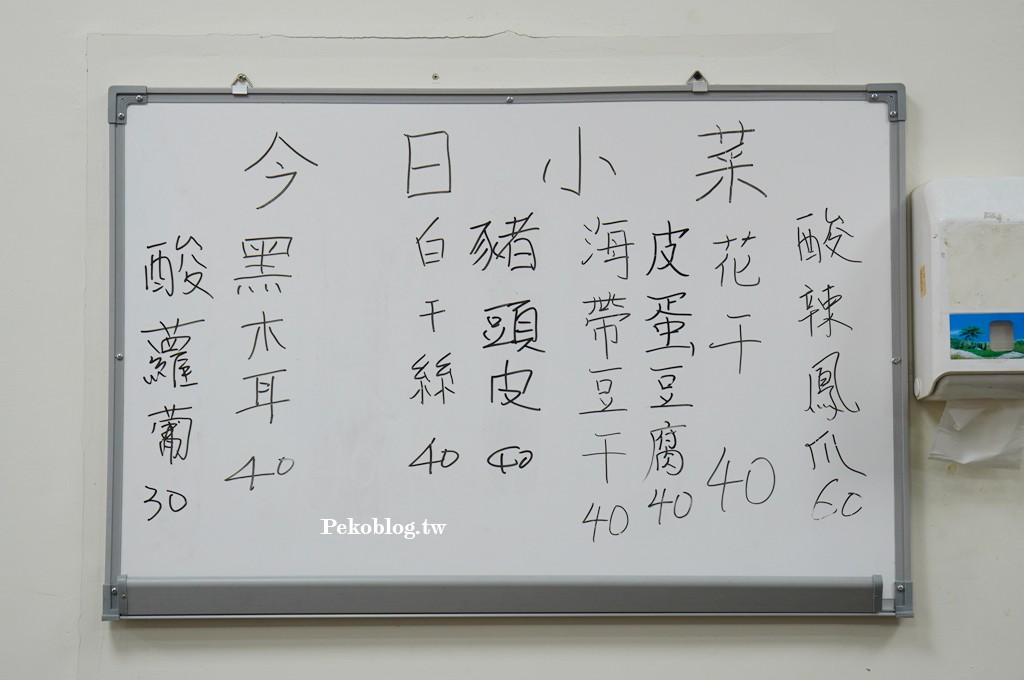 今日小菜
酸辣鳳爪 60
花干 40
皮蛋豆腐 40
海帶豆干 40
豬頭皮 40
白干絲 40
黑木耳 40
酸蘿蔔 30
Pekoblog.tw